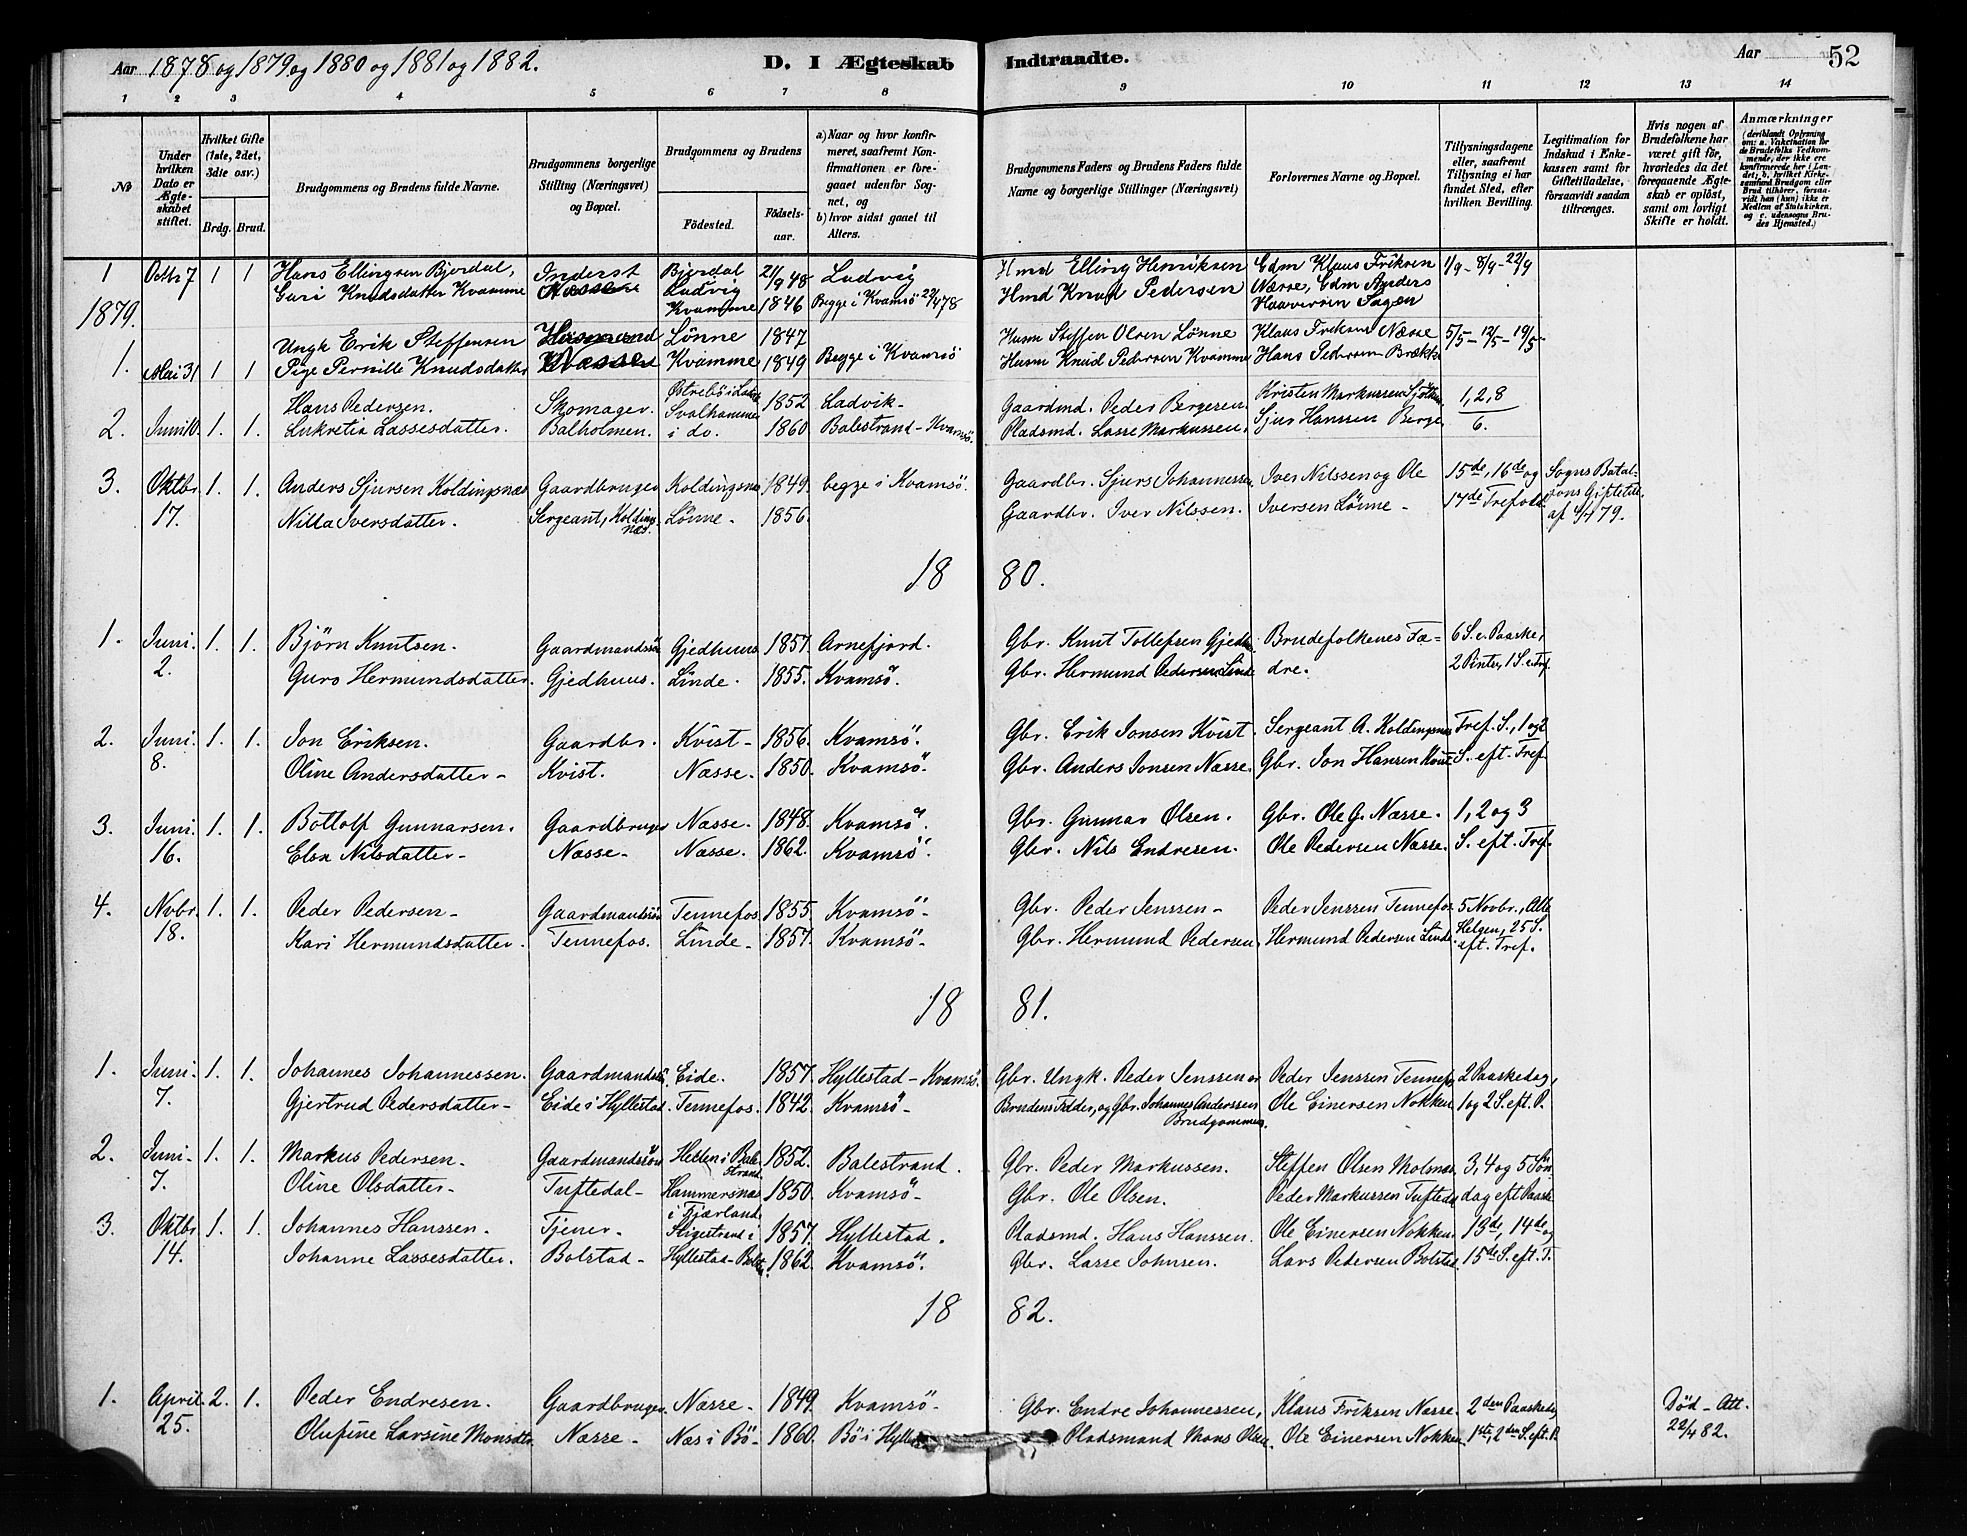 Aar 1878 og 1879 og 1880 og 1881 og 1882. D. I Ægteskab Indtraadte. Aar 52
1 2 3 4 5 6 7 8 9 10 11 12 13 14
No
Under hvilken Dato er Ægteskabet stiftet.
Hvilket Gifte (1ste, 2det, 3die osv.)
Brdg. Brud.
Brudgommens og Brudens fulde Navne.
Brudgommens borgerlige Stilling (Næringsvei) og Bopæl.
Brudgommens og Brudens
Födested. Födselsaar.
a) Naar og hvor konfirmeret, saafremt Konfirmationen er foregaaet udenfor Sognet, og
b) hvor sidst gaaet til Alters.
Brudgommens Faders og Brudens Faders fulde Navne og borgerlige Stillinger (Næringsvei)
Forlovernes Navne og Bopæl.
Tillysningsdagene eller, saafremt Tillysning ei har fundet Sted, efter hvilken Bevilling.
Legitimation for Indskud i Enkekassen samt for Giftetilladelse, forsaavidt saadan tiltrænges.
Hvis nogen af Brudefolkene har været gift för, hvorledes da det foregaaende Ægteskab er oplöst, samt om lovligt Skifte er holdt.
Anmærkninger (deriblandt Oplysning om: a. Vakcination for de Brudefolks Vedkommende, der ikke ere konfirmerede her i Landet; b. hvilket Kirkesamfund Brudgom eller Brud tilhörer, forsaavidt han (hun) ikke er Medlem af Statskirken, og c. udensogns Brudes Hjemsted.)
1 Octbr 7 1 1 Hans Ellingsen Bjordal, Inderst Bjordal 21/9 48 Ladvig Hmd Elling Henriksen Edm Klaus Friksen 1/9 - 8/9 - 22/9
Guri Knudsdatter Kvamme Næsse Ladvig Kvamme 1846 Begge i Kvamsö 22/4 78 Hmd Knud Pedersen Næsse, Edm Anders Haaversen Sagen
1879.
1. Mai 31 1 1 Ungk Erik Steffensen Husmand Lönne 1847 Husm Steffen Olsen Lönne Klaus Friksen Næsse 5/5 - 12/5 - 19/5
Pige Pernille Knudsdatter Næsse Kvamme 1849 Begge i Kvamsö Husm Knud Pedersen Kvamme Hans Pedersen Brække
2. Juni 10. 1. 1. Hans Pedersen. Skomager. Östrebö i Ladvik 1852 Ladvik- Gaardmd. Peder Bergesen. Kristen Markussen 1, 2, 8
Lukretia Lassesdatter. Balholmen. Svalhammer i do. 1860 Balestrand - Kvamsö. Pladsmd. Lasse Markussen. Sjur Hanssen Berge. 6.
3. Oktbr. 17. 1. 1. Anders Sjursen Koldingsnæs Gaardbruger Koldingsnæs 1849. begge i Kvamsö. Gaardbr. Sjurs Johannessen Iver Nilssen og Ole 15de, 16de og Sogns Bataljons Giftetill.
Nilla Iversdatter. Sergeant, Koldingsnæs. Lönne- 1856. Gaardbr. Iver Nilssen. Iversen Lönne - 17de Trefold. af 79.
18 80.
1. Juni. 2. 1. 1. Björn Knutsen. Gaardmandssön Gjedhuus 1857. Arnefjord. Gbr. Knut Tollefsen Gjedhu. Brudefolkenes Fæ- 6 S. e. Paaske,
Guro Hermundsdatter. Gjedhuus. Linde. 1855. Kvamsö. Gbr. Hermund Pedersen Linde dre. 2 Pintse, 1 S. e. Tref.
2. Juni. 8. 1. 1. Jon Eriksen. Gaardbr. Kvist- 1856. Kvamsö. Gbr. Erik Jonsen Kvist. Sergeant A. Koldingsnæs Tref. S., 1 og 2
Oline Andersdatter- Kvist. Næsse. 1850. Kvamsö. Gbr. Anders Jonsen Næsse. Gbr. Jon Hansen Kvist S. eft. Tref.
3. Juni. 16. 1. 1. Bottolf Gunnarsen. Gaardbruger Næsse. 1848. Kvamsö. Gbr. Gunnar Olsen. Gbr. Ole G. Næsse. 1, 2 og 3
Elsa Nilsdatter- Næsse- Næsse. 1862. Kvamsö. Gbr. Nils Endresen. Ole Pedersen Næsse. S. eft. Tref.
4. Novbr. 18. 1. 1. Peder Pedersen- Gaardmandssön Tennefos. 1855. Kvamsö- Gbr. Peder Jenssen- Peder Jenssen Tennefos. 5 Novbr., Alle
Kari Hermundsdatter. Tennefos. Linde- 1857. Kvamsö- Gbr. Hermund Pedersen, Hermund Pedersen Linde. Helgen, 25 S. eft. Tref.
18 81.
1. Juni. 7. 1. 1. Johannes Johannessen. Gaardmandss. Eide. 1857. Hyllestad - Kvamsö. Gbr. Ungk. Peder Jenssen er Peder Jenssen Tennefos 2 Paaskedag,
Gjertrud Pedersdatter- Eide i Hyllestad. Tennefos. 1842. Kvamsö- Brudens Fader, og Gbr. Johannes Anderssen Brudgommens. Ole Einersen Nokken 1 og 2 S. eft. P.
2. Juni- 7. 1. 1. Markus Pedersen- Gaardmandssön Hellen i Balestrand 1852. Balestrand. Gbr. Peder Markussen. Steffen Olsen Molsnæs 3, 4 og 5 Sön-
Oline Olsdatter- Tuftedal- Hammersnæs i Fjærland. 1850. Kvamsö- Gbr. Ole Olsen. Peder Markussen Tuftedal dag eft Paaske
3. Oktbr. 14. 1. 1. Johannes Hanssen. Tjener- Stigestrand i 1857. Hyllestad. Pladsmd. Hans Hanssen. Ole Einersen Nokken. 13de, 14de og
Johanne Lassesdatter. Bolstad- Hyllestad - Bolst. 1862. Kvamsö. Gbr. Lasse Johnsen. Lars Pedersen Bolstad. 15de S. eft. T.
18 82.
1. April. 25. 2. 1. Peder Endresen. Gaardbruger. Næsse- 1849. Kvamsö- Gbr. Endre Johannessen, Klaus Friksen Næsse. 2den Paaskedag Död - Att.
Olufine Larsine Monsdtr. Næsse- Næs i Bö- 1860. Bö i Hylle Pladsmand Mons Olsen. Ole Einersen Nokken. 1ste, 2den S. eft. P. 22/4 82.